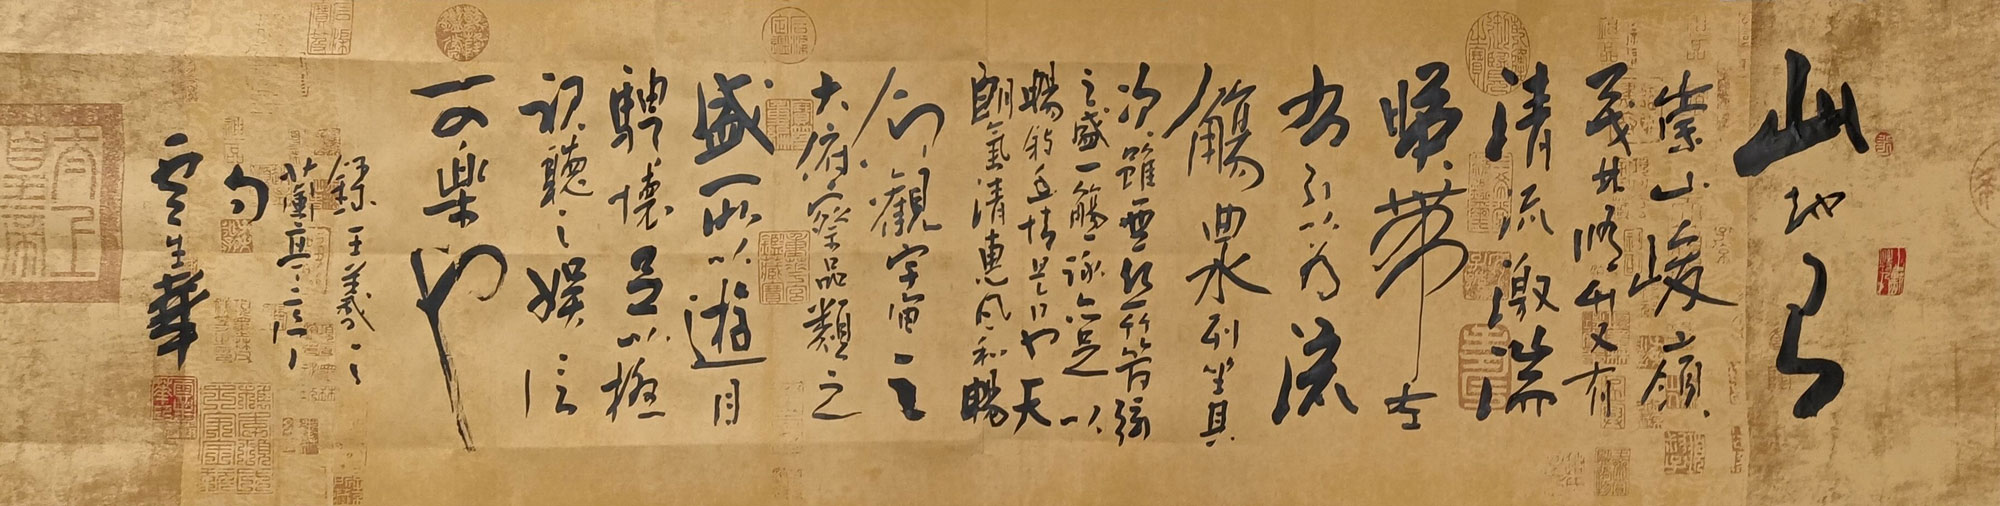 此地有
崇山峻嶺
茂林脩竹又有
清流激湍
暎帶左
右引以為流
觴曲水列坐其
次雖無絲竹管弦
之盛一觴一詠亦足以
暢敘幽情是日也天
朗氣清惠風和暢
仰觀宇宙之
大俯察品類之
盛所以遊目
騁懷足以極
視聽之娛信
可樂也
錄王羲之
蘭亭序
句
云生華